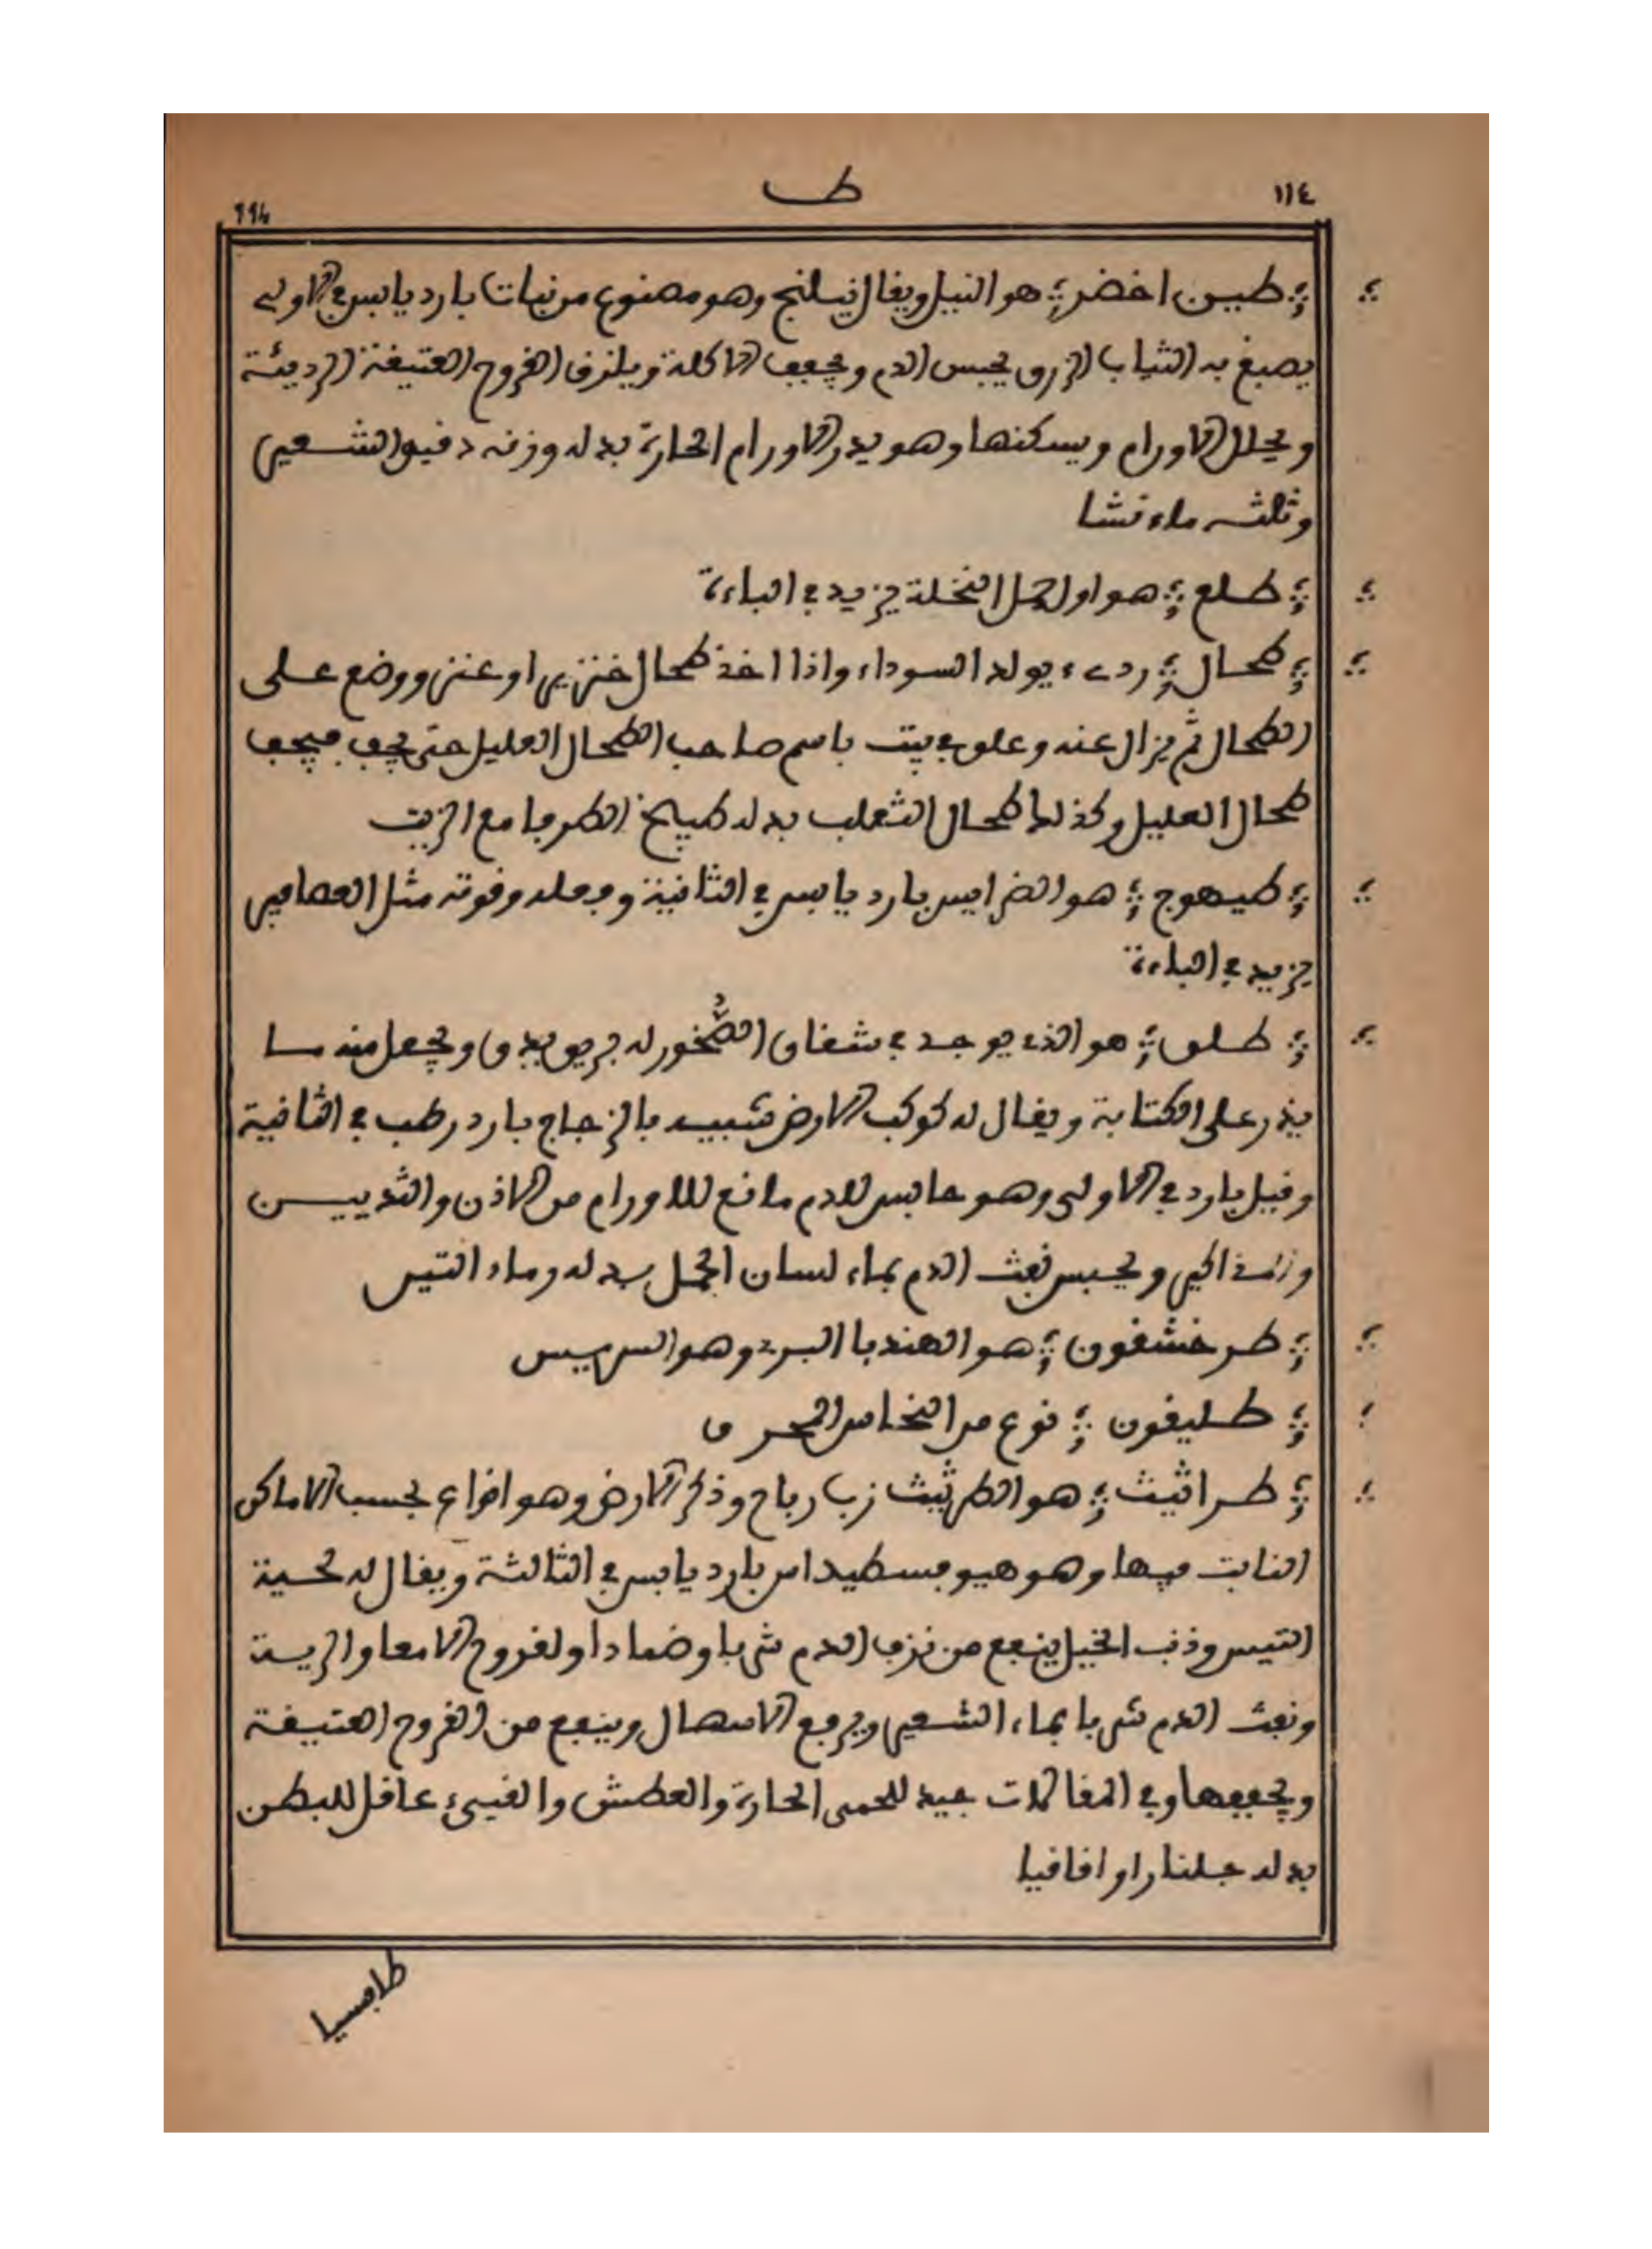 ١١٤
ط
114
طين اخضر هو النيل ويقال نيلنج وهو مصنوع من نبات بارد يابس في الاولى
يصبغ به الثياب الزرق يحبس الدم ويجفف الاكلة ويلزق القروح العتيقة الرديئة
ويحلل الاورام ويسكنها وهو يدر الاورام الحارة بدله وزنه دقيق الشعير
وثلثه ماء نشا
طلع هو اول حمل النخلة يزيد في الباءة
طحال ردىء يولد السوداء واذا اخذ طحال خنزير او عنز ووضع على
الطحال ثم يزال عنه وعلق في بيت باسم صاحب الطحال العليل حتى يجف فيجف
طحال العليل وكذلك طحال الثعلب بدله طبيخ الطرفا مع الزيت
طيهوج هو الضرايس بارد يابس في الثانية وفعله وقوته مثل العصافير
يزيد في الباءة
طلق هو الذي يوجد في شقاق الصخور له بريق يبرق ويجعل منه ما
يذر على الكتابة ويقال له كوكب الارض شبيه بالزجاج بارد رطب في الثانية
وقيل بارد في الاولى وهو حابس للدم مانع للاورام من الاذن والثديين
ويحبس نفث الدم بماء لسان الحمل بدله وماء التيس
طرخشقون هو الهندبا البري وهو السريس
طليقون نوع من النحاس المحرق
طراثيث هو الطرثيث زب رباح وذكر الارض وهو انواع بحسب الاماكن
النابت فيها وهو هيوفسطيداس بارد يابس في الثالثة ويقال له لحية
التيس وذنب الخيل ينفع من نزف الدم شربا وضمادا ولقروح الامعا والرية
ونفث الدم شربا بماء الشعير ويرفع الاسهال وينفع من القروح العتيقة
ويجففها وفي المقالات جيد للحمى الحارة والعطش والقيىء عاقل للبطن
بدله جلنار او اقاقيا
طافسيا